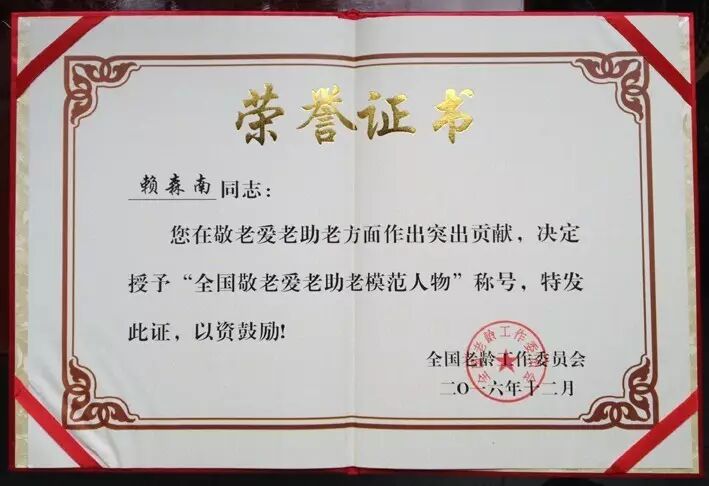 荣誉证书
赖森南同志：
您在敬老爱老助老方面作出突出贡献，决定
授予“全国敬老爱老助老模范人物”称号，特发
此证，以资鼓励!
全国老龄工作委员会
二〇一六年十二月
全国老龄工作委员会